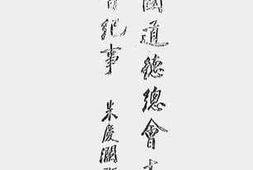 國道德總會
紀事
朱慶瀾